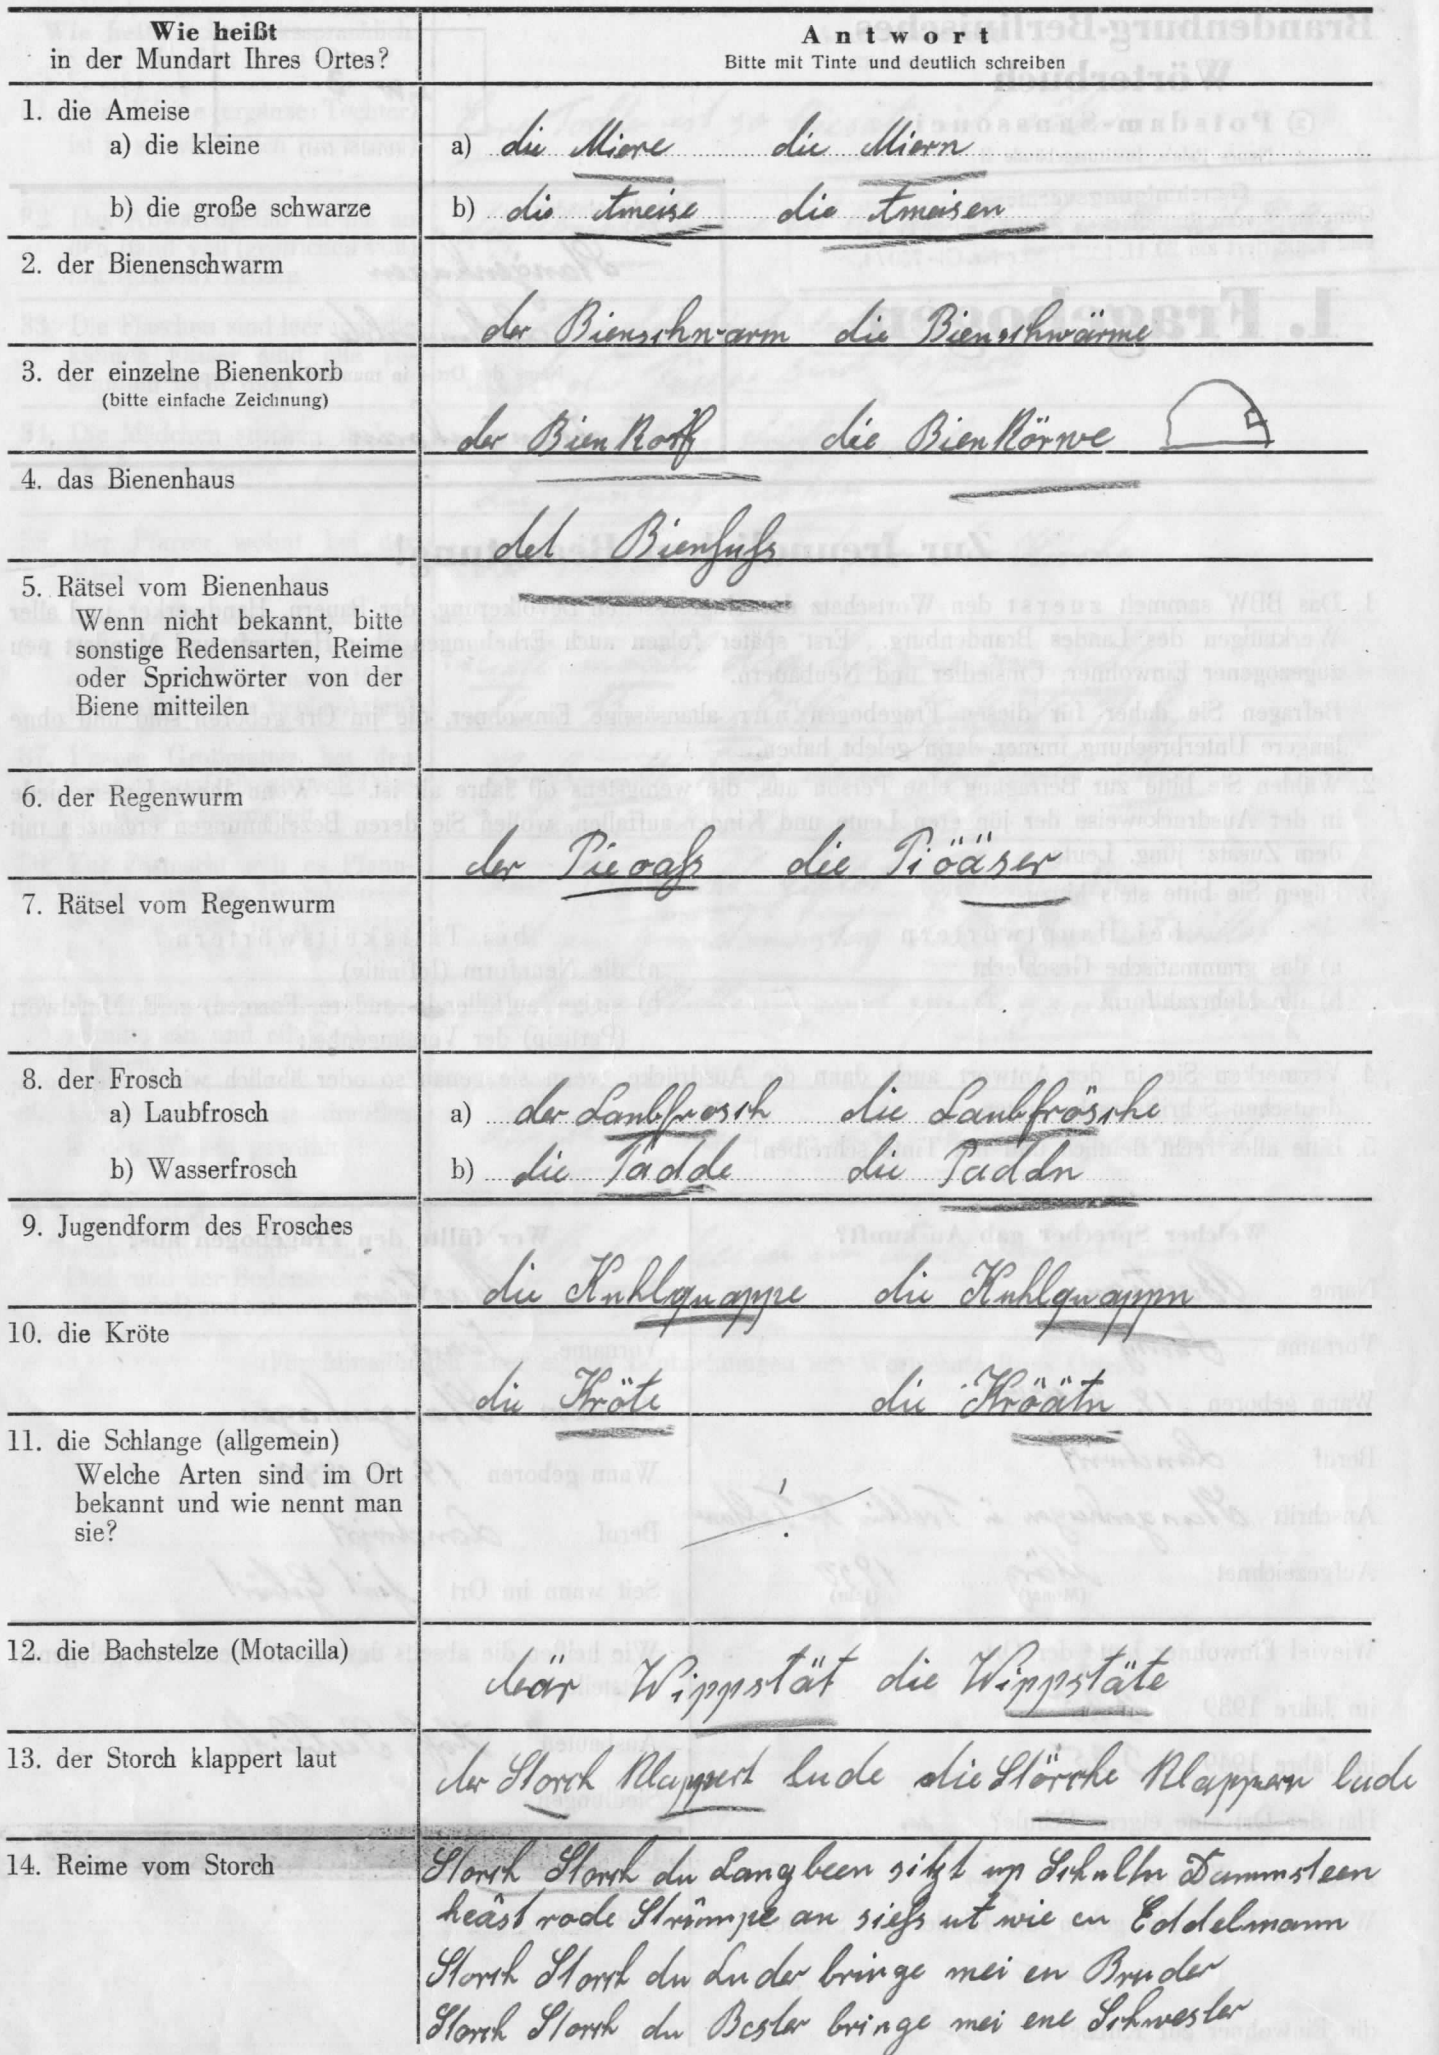 Wie heißt
in der Mundart Ihres Ortes?
Antwort
Bitte mit Tinte und deutlich schreiben
1. die Ameise
a) die kleine
a) die Miere die Miern
b) die große schwarze
b) die Ameise die Ameisen
2. der Bienenschwarm
der Bienschwarm die Bienschwärme
3. der einzelne Bienenkorb
(bitte einfache Zeichnung)
der Bienkorf die Bienkörwe
4. das Bienenhaus
det Bienhuhs
5. Rätsel vom Bienenhaus
Wenn nicht bekannt, bitte
sonstige Redensarten, Reime
oder Sprichwörter von der
Biene mitteilen
6. der Regenwurm
der Pieoahs die Piöäser
7. Rätsel vom Regenwurm
8. der Frosch
a) Laubfrosch
a) der Laubfrosch die Laubfrösche
b) Wasserfrosch
b) die Padde die Paddn
9. Jugendform des Frosches
die Kuhlquappe die Kuhlquappn
10. die Kröte
die Kröte die Kröätn
11. die Schlange (allgemein)
Welche Arten sind im Ort
bekannt und wie nennt man
sie?
12. die Bachstelze (Motacilla)
deär Wippstät die Wippstäte
13. der Storch klappert laut
der Storch klappert lude die Störche klappern lude
14. Reime vom Storch
Storch Storch du Langbeen sitzt up Schultn Dammsteen
heäst rode Strümpe an siehs ut wie en Eddelmann
Storch Storch du Luder bringe mei en Bruder
Storch Storch du Bester bringe mei ene Schwester